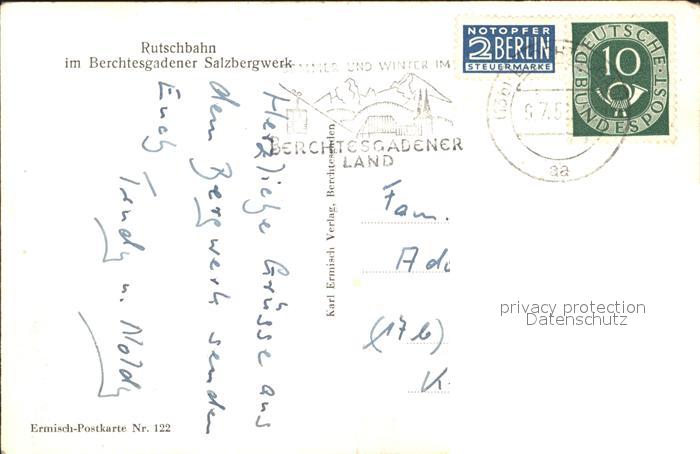 Rutschbahn
im Berchtesgadener Salzbergwerk
NOTOPFER
2 BERLIN
STEUERMARKE
DEUTSCHE
10
BUNDESPOST
SOMMER UND WINTER IM
BERCHTESGADENER
LAND
aa
Herzliche Grüsse aus
dem Bergwerk senden
Euch
u.
Karl Ermisch Verlag, Berchtesgaden
Fam.
(17b)
privacy protection
Datenschutz
Ermisch-Postkarte Nr. 122